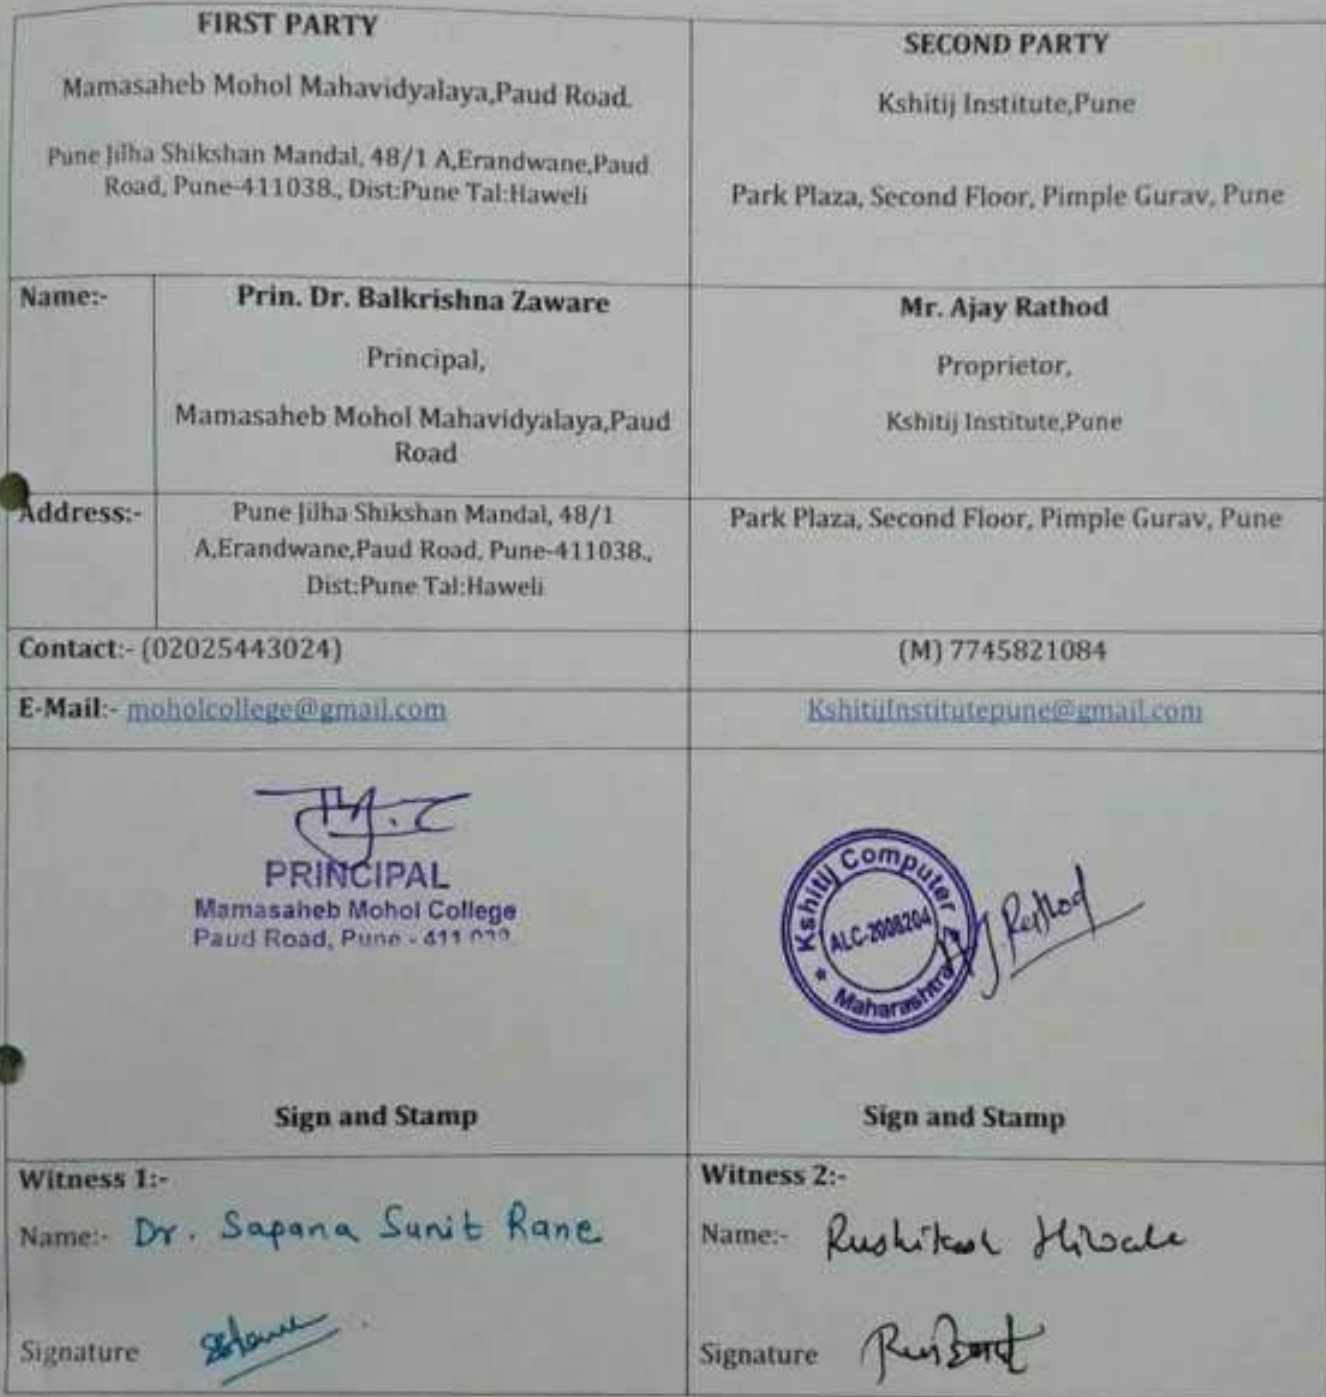 FIRST PARTY
Mamasaheb Mohol Mahavidyalaya,Paud Road.
Pune Jilha Shikshan Mandal, 48/1 A,Erandwane,Paud
Road, Pune-411038., Dist:Pune Tal:Haweli
SECOND PARTY
Kshitij Institute,Pune
Park Plaza, Second Floor, Pimple Gurav, Pune
Name:-
Prin. Dr. Balkrishna Zaware
Principal,
Mamasaheb Mohol Mahavidyalaya,Paud
Road
Mr. Ajay Rathod
Proprietor,
Kshitij Institute,Pune
Address:-
Pune Jilha Shikshan Mandal, 48/1
A,Erandwane,Paud Road, Pune-411038.,
Dist:Pune Tal:Haweli
Park Plaza, Second Floor, Pimple Gurav, Pune
Contact:- (02025443024)
(M) 7745821084
E-Mail:- moholcollege@gmail.com
KshitijInstitutepune@gmail.com
PRINCIPAL
Mamasaheb Mohol College
Paud Road, Pune - 411
Kshitij Computer
ALC-2008204
Maharashtra
Rathod
Sign and Stamp
Sign and Stamp
Witness 1:-
Name:- Dr. Sapana Sunit Rane
Signature
Witness 2:-
Name:- Rushikesh Hiwale
Signature